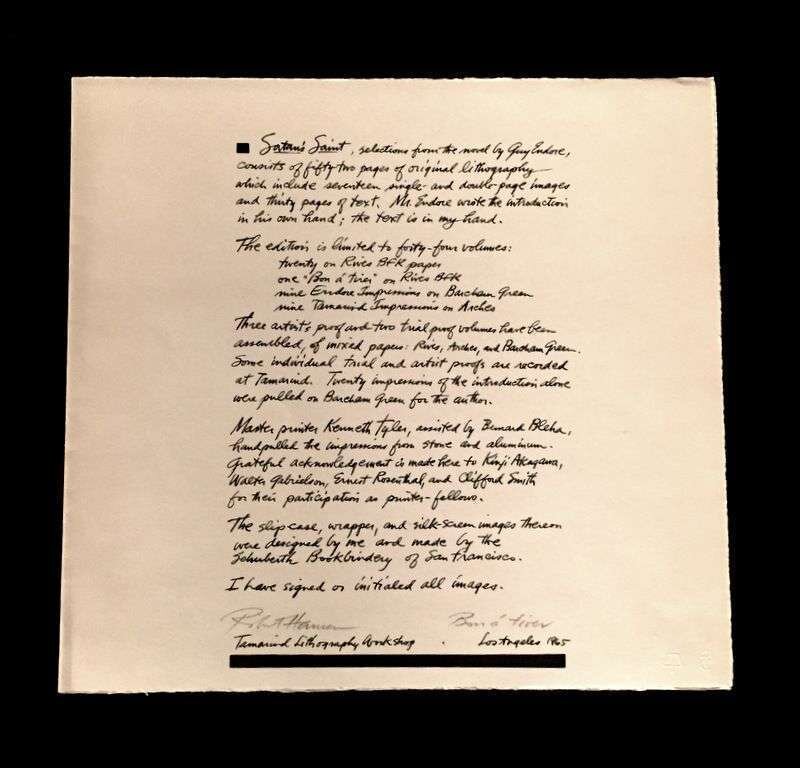 Satan's Saint, selections from the novel by Guy Endore,
consists of fifty-two pages of original lithography
which include seventeen single- and double-page images
and thirty pages of text. Mr. Endore wrote the introduction
in his own hand; the text is in my hand.
The edition is limited to forty-four volumes:
twenty on Rives BFK paper
one "Bon á Tirer" on Rives BFK
nine Endore Impressions on Barcham Green
nine Tamarind Impressions on Arches
Three artist's proof and two trial proof volumes have been
assembled, of mixed papers: Rives, Arches, and Barcham Green.
Some individual trial and artist proofs are recorded
at Tamarind. Twenty impressions of the introduction alone
were pulled on Barcham Green for the author.
Master printer Kenneth Tyler, assisted by Bernard Bleha,
handpulled the impressions from stone and aluminum.
Grateful acknowledgement is made here to Kinji Akagawa,
Walter Gabrielson, Ernest Rosenthal, and Clifford Smith
for their participation as printer-fellows.
The slipcase, wrapper, and silk-screen images thereon
were designed by me and made by the
Schuberth Bookbindery of San Francisco.
I have signed or initialed all images.
Robert Hansen Bon á tirer
Tamarind Lithography Workshop . Los Angeles 1965